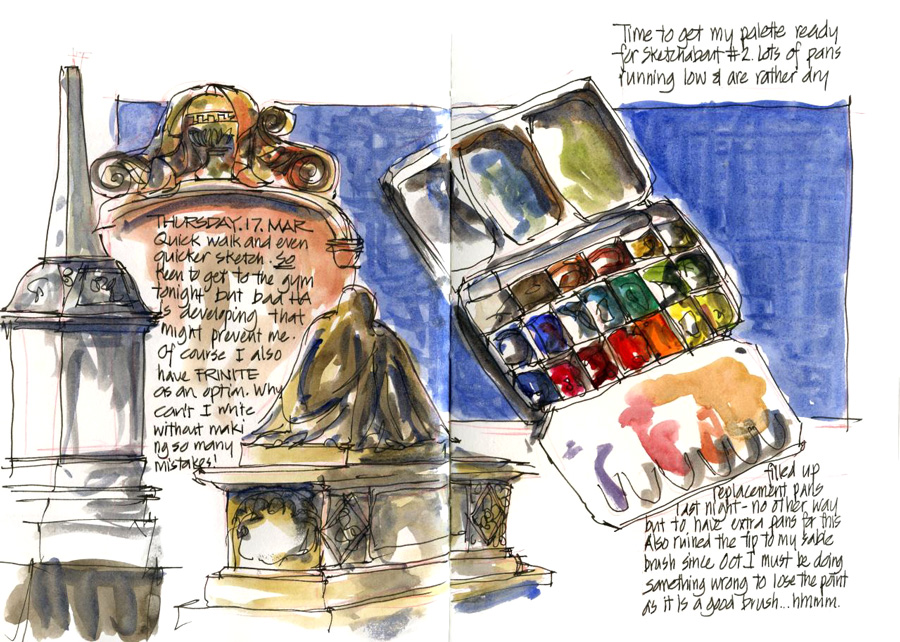 THURSDAY. 17. MAR
Quick walk and even
quicker sketch. So
keen to get to the gym
tonight but bad HA
is developing that
might prevent me.
Of course I also
have FRINITE
as an option. Why
can't I write
without maki
ng so many
mistakes!
Time to get my palette ready
for Sketchabout #2. Lots of pans
running low & are rather dry
filled up
replacement pans
last night - no other way
but to have extra pans for this
Also ruined the tip to my sable
brush since Oct. I must be doing
something wrong to lose the point
as it is a good brush... hmmm.